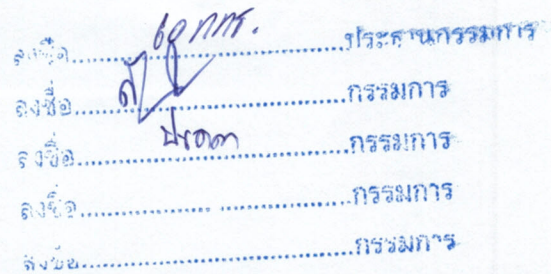 ลงชื่อ..............................ประธานกรรมการ
ลงชื่อ..............................กรรมการ
ลงชื่อ..............................กรรมการ
ลงชื่อ..............................กรรมการ
ลงชื่อ..............................กรรมการ